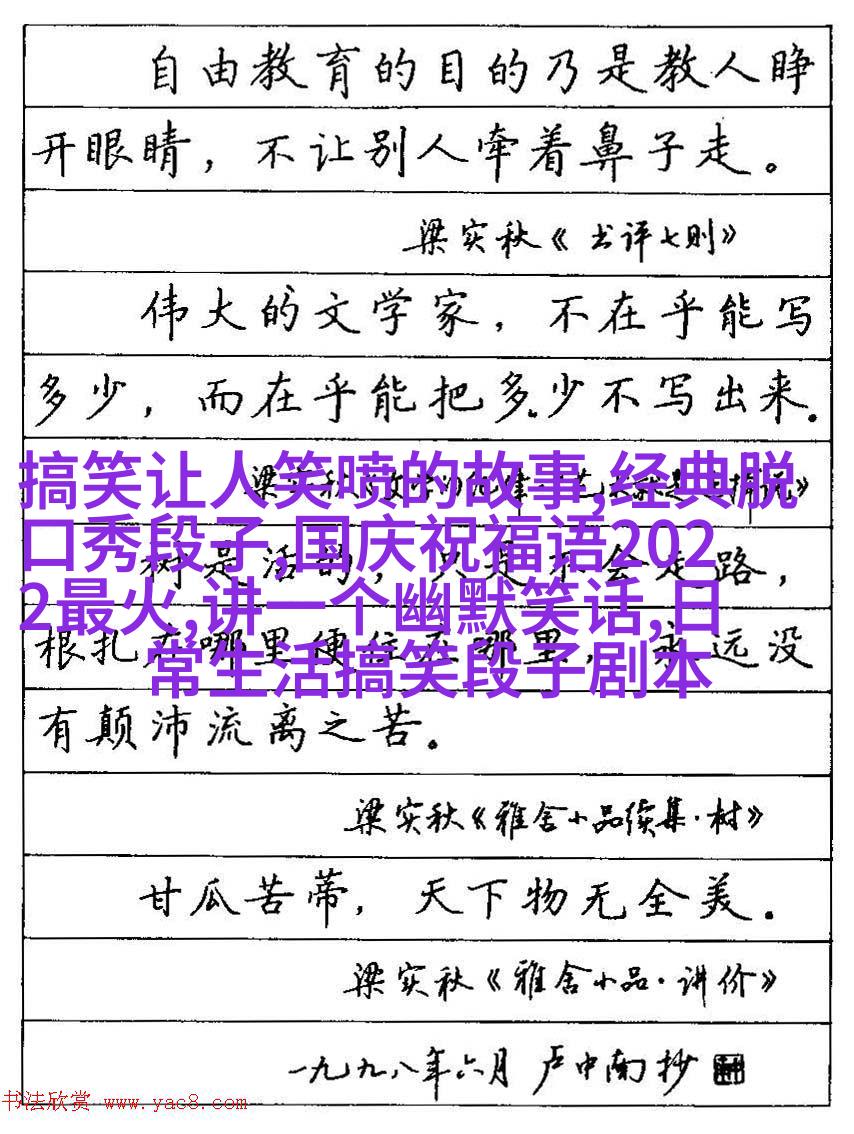 自由教育的目的乃是教人睁
开眼睛，不让别人牵着鼻子走。
梁实秋《书评七则》
伟大的文学家，不在乎能写
多少，而在乎能把多少不写出来.
梁实秋
搞笑让人笑喷的故事,经典脱
口秀段子,国庆祝福语202
2最火,讲一个幽默笑话,日
常生活搞笑段子剧本
树是活的，只是不会走路，
根扎在哪里便住在哪里，永远没
有颠沛流离之苦。
梁实秋《雅舍小品续集·树》
甘瓜苦蒂，天下物无全美.
梁实秋《雅舍小品·讲价》
一九九八年六月 卢中南抄
书法欣赏 www.yac8.com